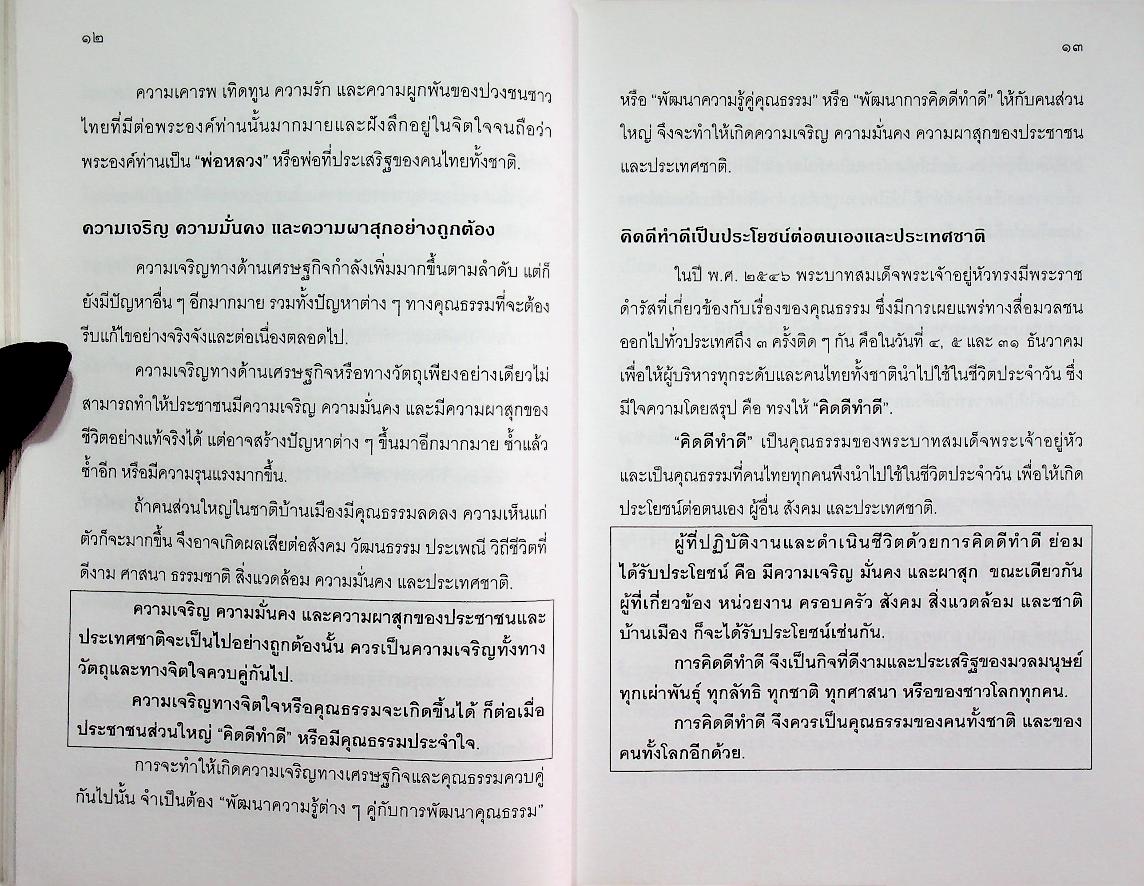 ๑๒
ความเคารพ เทิดทูน ความรัก และความผูกพันของปวงชนชาว
ไทยที่มีต่อพระองค์ท่านนั้นมากมายและฝังลึกอยู่ในจิตใจจนถือว่า
พระองค์ท่านเป็น “พ่อหลวง” หรือพ่อที่ประเสริฐของคนไทยทั้งชาติ.
ความเจริญ ความมั่นคง และความผาสุกอย่างถูกต้อง
ความเจริญทางด้านเศรษฐกิจกำลังเพิ่มมากขึ้นตามลำดับ แต่ก็
ยังมีปัญหาอื่น ๆ อีกมากมาย รวมทั้งปัญหาต่าง ๆ ทางคุณธรรมที่จะต้อง
รีบแก้ไขอย่างจริงจังและต่อเนื่องตลอดไป.
ความเจริญทางด้านเศรษฐกิจหรือทางวัตถุเพียงอย่างเดียวไม่
สามารถทำให้ประชาชนมีความเจริญ ความมั่นคง และมีความผาสุกของ
ชีวิตอย่างแท้จริงได้ แต่อาจสร้างปัญหาต่าง ๆ ขึ้นมาอีกมากมาย ซ้ำแล้ว
ซ้ำอีก หรือมีความรุนแรงมากขึ้น.
ถ้าคนส่วนใหญ่ในชาติบ้านเมืองมีคุณธรรมลดลง ความเห็นแก่
ตัวก็จะมากขึ้น จึงอาจเกิดผลเสียต่อสังคม วัฒนธรรม ประเพณี วิถีชีวิตที่
ดีงาม ศาสนา ธรรมชาติ สิ่งแวดล้อม ความมั่นคง และประเทศชาติ.
ความเจริญ ความมั่นคง และความผาสุกของประชาชนและ
ประเทศชาติจะเป็นไปอย่างถูกต้องนั้น ควรเป็นความเจริญทั้งทาง
วัตถุและทางจิตใจควบคู่กันไป.
ความเจริญทางจิตใจหรือคุณธรรมจะเกิดขึ้นได้ ก็ต่อเมื่อ
ประชาชนส่วนใหญ่ “คิดดีทำดี” หรือมีคุณธรรมประจำใจ.
การจะทำให้เกิดความเจริญทางเศรษฐกิจและคุณธรรมควบคู่
กันไปนั้น จำเป็นต้อง “พัฒนาความรู้ต่าง ๆ คู่กับการพัฒนาคุณธรรม”
๑๓
หรือ “พัฒนาความรู้คู่คุณธรรม” หรือ “พัฒนาการคิดดีทำดี” ให้กับคนส่วน
ใหญ่ จึงจะทำให้เกิดความเจริญ ความมั่นคง ความผาสุกของประชาชน
และประเทศชาติ.
คิดดีทำดีเป็นประโยชน์ต่อตนเองและประเทศชาติ
ในปี พ.ศ. ๒๕๔๖ พระบาทสมเด็จพระเจ้าอยู่หัวทรงมีพระราช
ดำรัสที่เกี่ยวข้องกับเรื่องของคุณธรรม ซึ่งมีการเผยแพร่ทางสื่อมวลชน
ออกไปทั่วประเทศถึง ๓ ครั้งติด ๆ กัน คือในวันที่ ๔, ๕ และ ๓๑ ธันวาคม
เพื่อให้ผู้บริหารทุกระดับและคนไทยทั้งชาตินำไปใช้ในชีวิตประจำวัน ซึ่ง
มีใจความโดยสรุป คือ ทรงให้ “คิดดีทำดี”.
“คิดดีทำดี” เป็นคุณธรรมของพระบาทสมเด็จพระเจ้าอยู่หัว
และเป็นคุณธรรมที่คนไทยทุกคนพึงนำไปใช้ในชีวิตประจำวัน เพื่อให้เกิด
ประโยชน์ต่อตนเอง ผู้อื่น สังคม และประเทศชาติ.
ผู้ที่ปฏิบัติงานและดำเนินชีวิตด้วยการคิดดีทำดี ย่อม
ได้รับประโยชน์ คือ มีความเจริญ มั่นคง และผาสุก ขณะเดียวกัน
ผู้ที่เกี่ยวข้อง หน่วยงาน ครอบครัว สังคม สิ่งแวดล้อม และชาติ
บ้านเมือง ก็จะได้รับประโยชน์เช่นกัน.
การคิดดีทำดี จึงเป็นกิจที่ดีงามและประเสริฐของมวลมนุษย์
ทุกเผ่าพันธุ์ ทุกลัทธิ ทุกชาติ ทุกศาสนา หรือของชาวโลกทุกคน.
การคิดดีทำดี จึงควรเป็นคุณธรรมของคนทั้งชาติ และของ
คนทั้งโลกอีกด้วย.